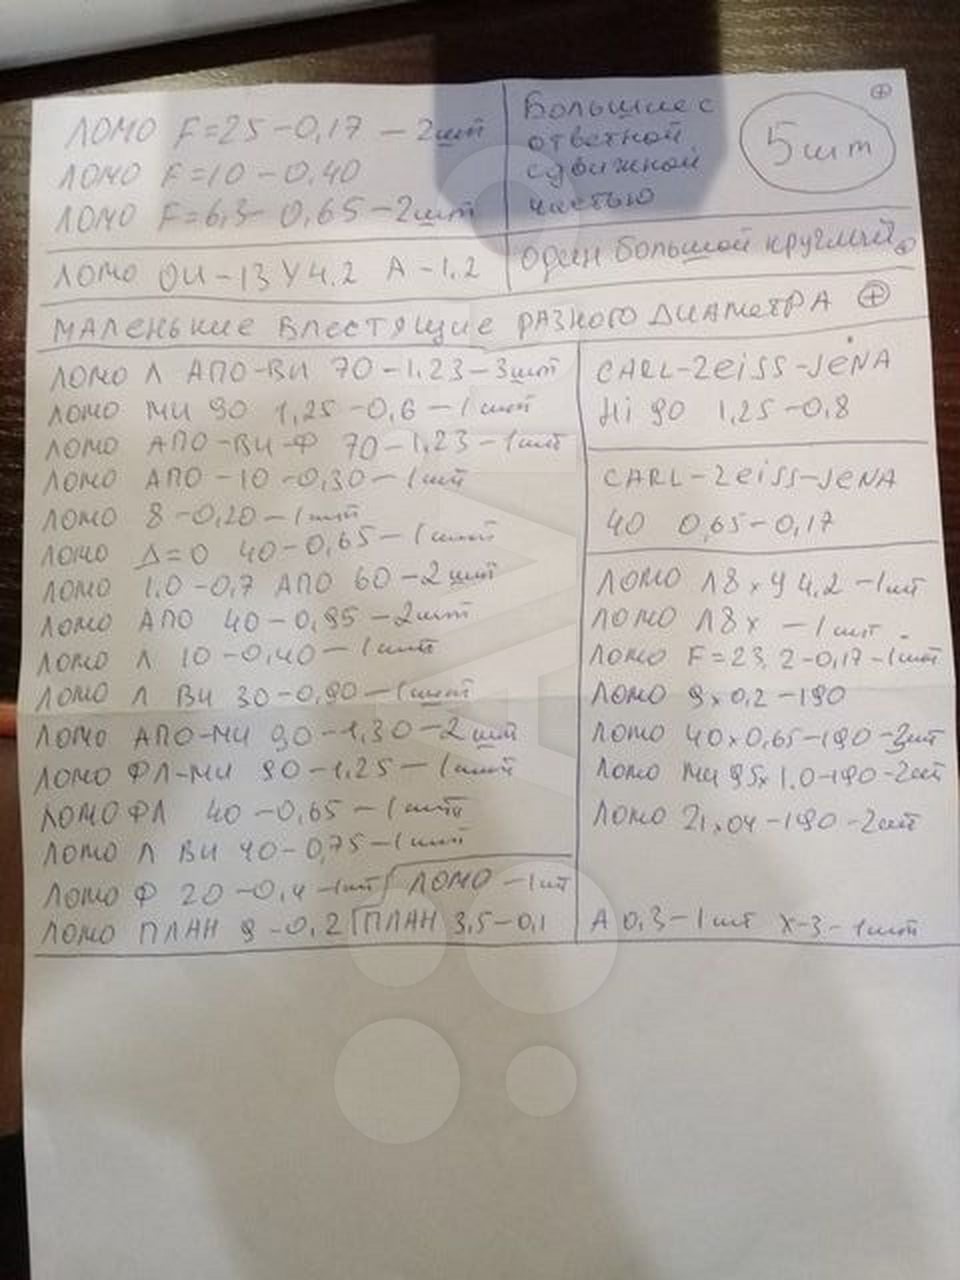 ЛОМО F=25-0,17 - 2шт
ЛОМО F=10-0,40
ЛОМО F=6,3-0,65-2шт
Большие с
ответной
сдвижной
частью
5шт
ЛОМО ОИ-13 У4.2 А-1.2
один большой круглый
МАЛЕНЬКИЕ БЛЕСТЯЩИЕ РАЗНОГО ДИАМЕТРА
ЛОМО Л АПО-ВИ 70-1,23-3шт
ЛОМО МИ 90 1,25-0,6-1шт
ЛОМО АПО-ВИ-Ф 70-1,23-1шт
ЛОМО АПО-10-0,30-1шт
ЛОМО 8-0,20-1шт
ЛОМО Δ=0 40-0,65-1шт
ЛОМО 1.0-0,7 АПО 60-2шт
ЛОМО АПО 40-0,95-2шт
ЛОМО Л 10-0,40-1шт
ЛОМО Л ВИ 30-0,90-1шт
ЛОМО АПО-МИ 90-1,30-2шт
ЛОМО ФЛ-МИ 90-1,25-1шт
ЛОМО ФЛ 40-0,65-1шт
ЛОМО Л ВИ 40-0,75-1шт
ЛОМО Ф 20-0,4-1шт
ЛОМО ПЛАН 9-0,2
ЛОМО-1шт
ПЛАН 3,5-0,1
CARL-ZEiSS-JENA
Hi 90 1,25-0,8
CARL-ZEiSS-JENA
40 0,65-0,17
ЛОМО Л8xУ4,2-1шт
ЛОМО Л8x -1шт
ЛОМО F=23,2-0,17-1шт
ЛОМО 9x0,2-190
ЛОМО 40x0,65-190-3шт
ЛОМО МИ 95x1.0-190-2шт
ЛОМО 21x04-190-2шт
А 0,3-1шт X-3-1шт